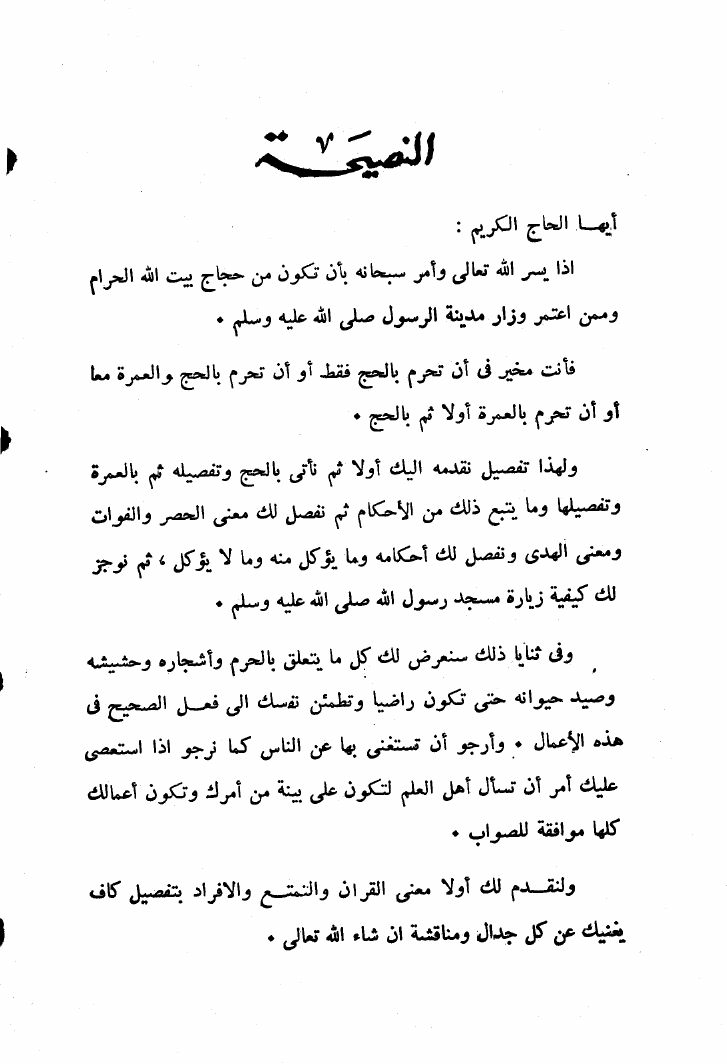 النصيحة
أيها الحاج الكريم :
اذا يسر الله تعالى وأمر سبحانه بأن تكون من حجاج بيت الله الحرام
وممن اعتمر وزار مدينة الرسول صلى الله عليه وسلم ٠
فأنت مخير فى أن تحرم بالحج فقط أو أن تحرم بالحج والعمرة معا
أو أن تحرم بالعمرة أولا ثم بالحج ٠
ولهذا تفصيل نقدمه اليك أولا ثم نأتى بالحج وتفصيله ثم بالعمرة
وتفصيلها وما يتبع ذلك من الأحكام ثم نفصل لك معنى الحصر والفوات
ومعنى الهدى ونفصل لك أحكامه وما يؤكل منه وما لا يؤكل ، ثم نوجز
لك كيفية زيارة مسجد رسول الله صلى الله عليه وسلم ٠
وفى ثنايا ذلك سنعرض لك كل ما يتعلق بالحرم وأشجاره وحشيشه
وصيد حيوانه حتى تكون راضيا وتطمئن نفسك الى فعل الصحيح فى
هذه الأعمال ٠ وأرجو أن تستغنى بها عن الناس كما نرجو اذا استعصى
عليك أمر أن تسأل أهل العلم لتكون على بينة من أمرك وتكون أعمالك
كلها موافقة للصواب ٠
ولنقدم لك أولا معنى القران والتمتع والافراد بتفصيل كاف
يغنيك عن كل جدال ومناقشة ان شاء الله تعالى ٠